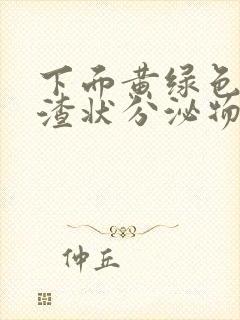 下面黄绿色
渣状分泌物
仲丘